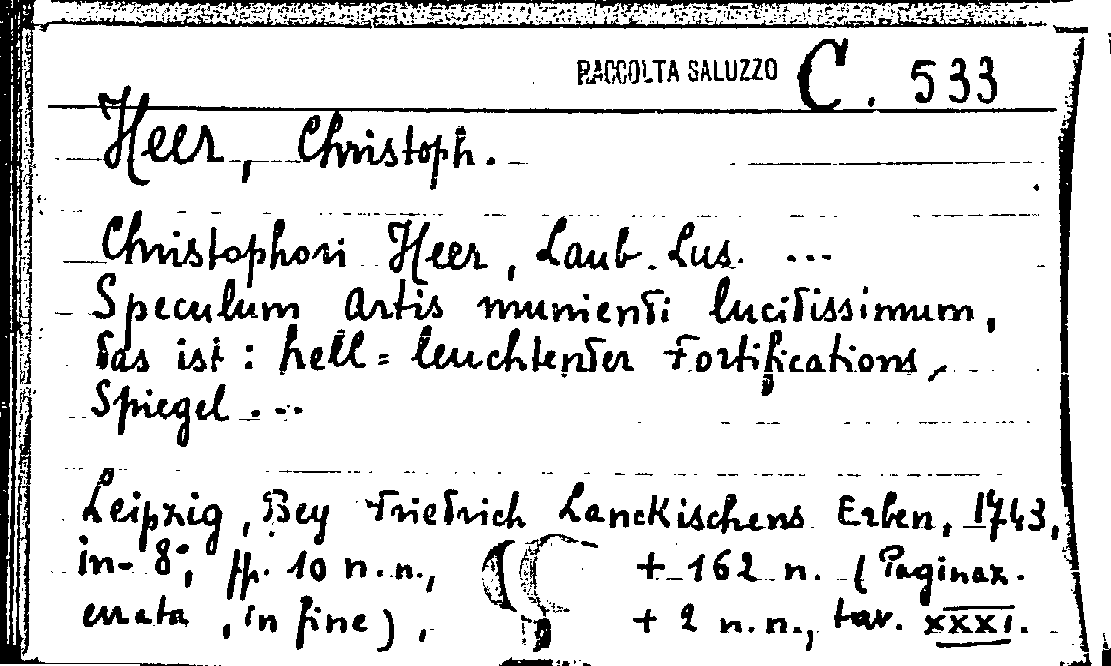 RACCOLTA SALUZZO C. 533
Heer, Christoph.
Christophori Heer, Laub. Lus. ...
Speculum artis muniendi lucidissimum,
das ist : hell = leuchtender Fortifications,
Spiegel ...
Leipzig, Bey Friedrich Lanckischens Erben, 1743,
in- 8°, pp. 10 n.n., + 162 n. (Paginaz.
errata, in fine), + 2 n.n., tav. XXXI.